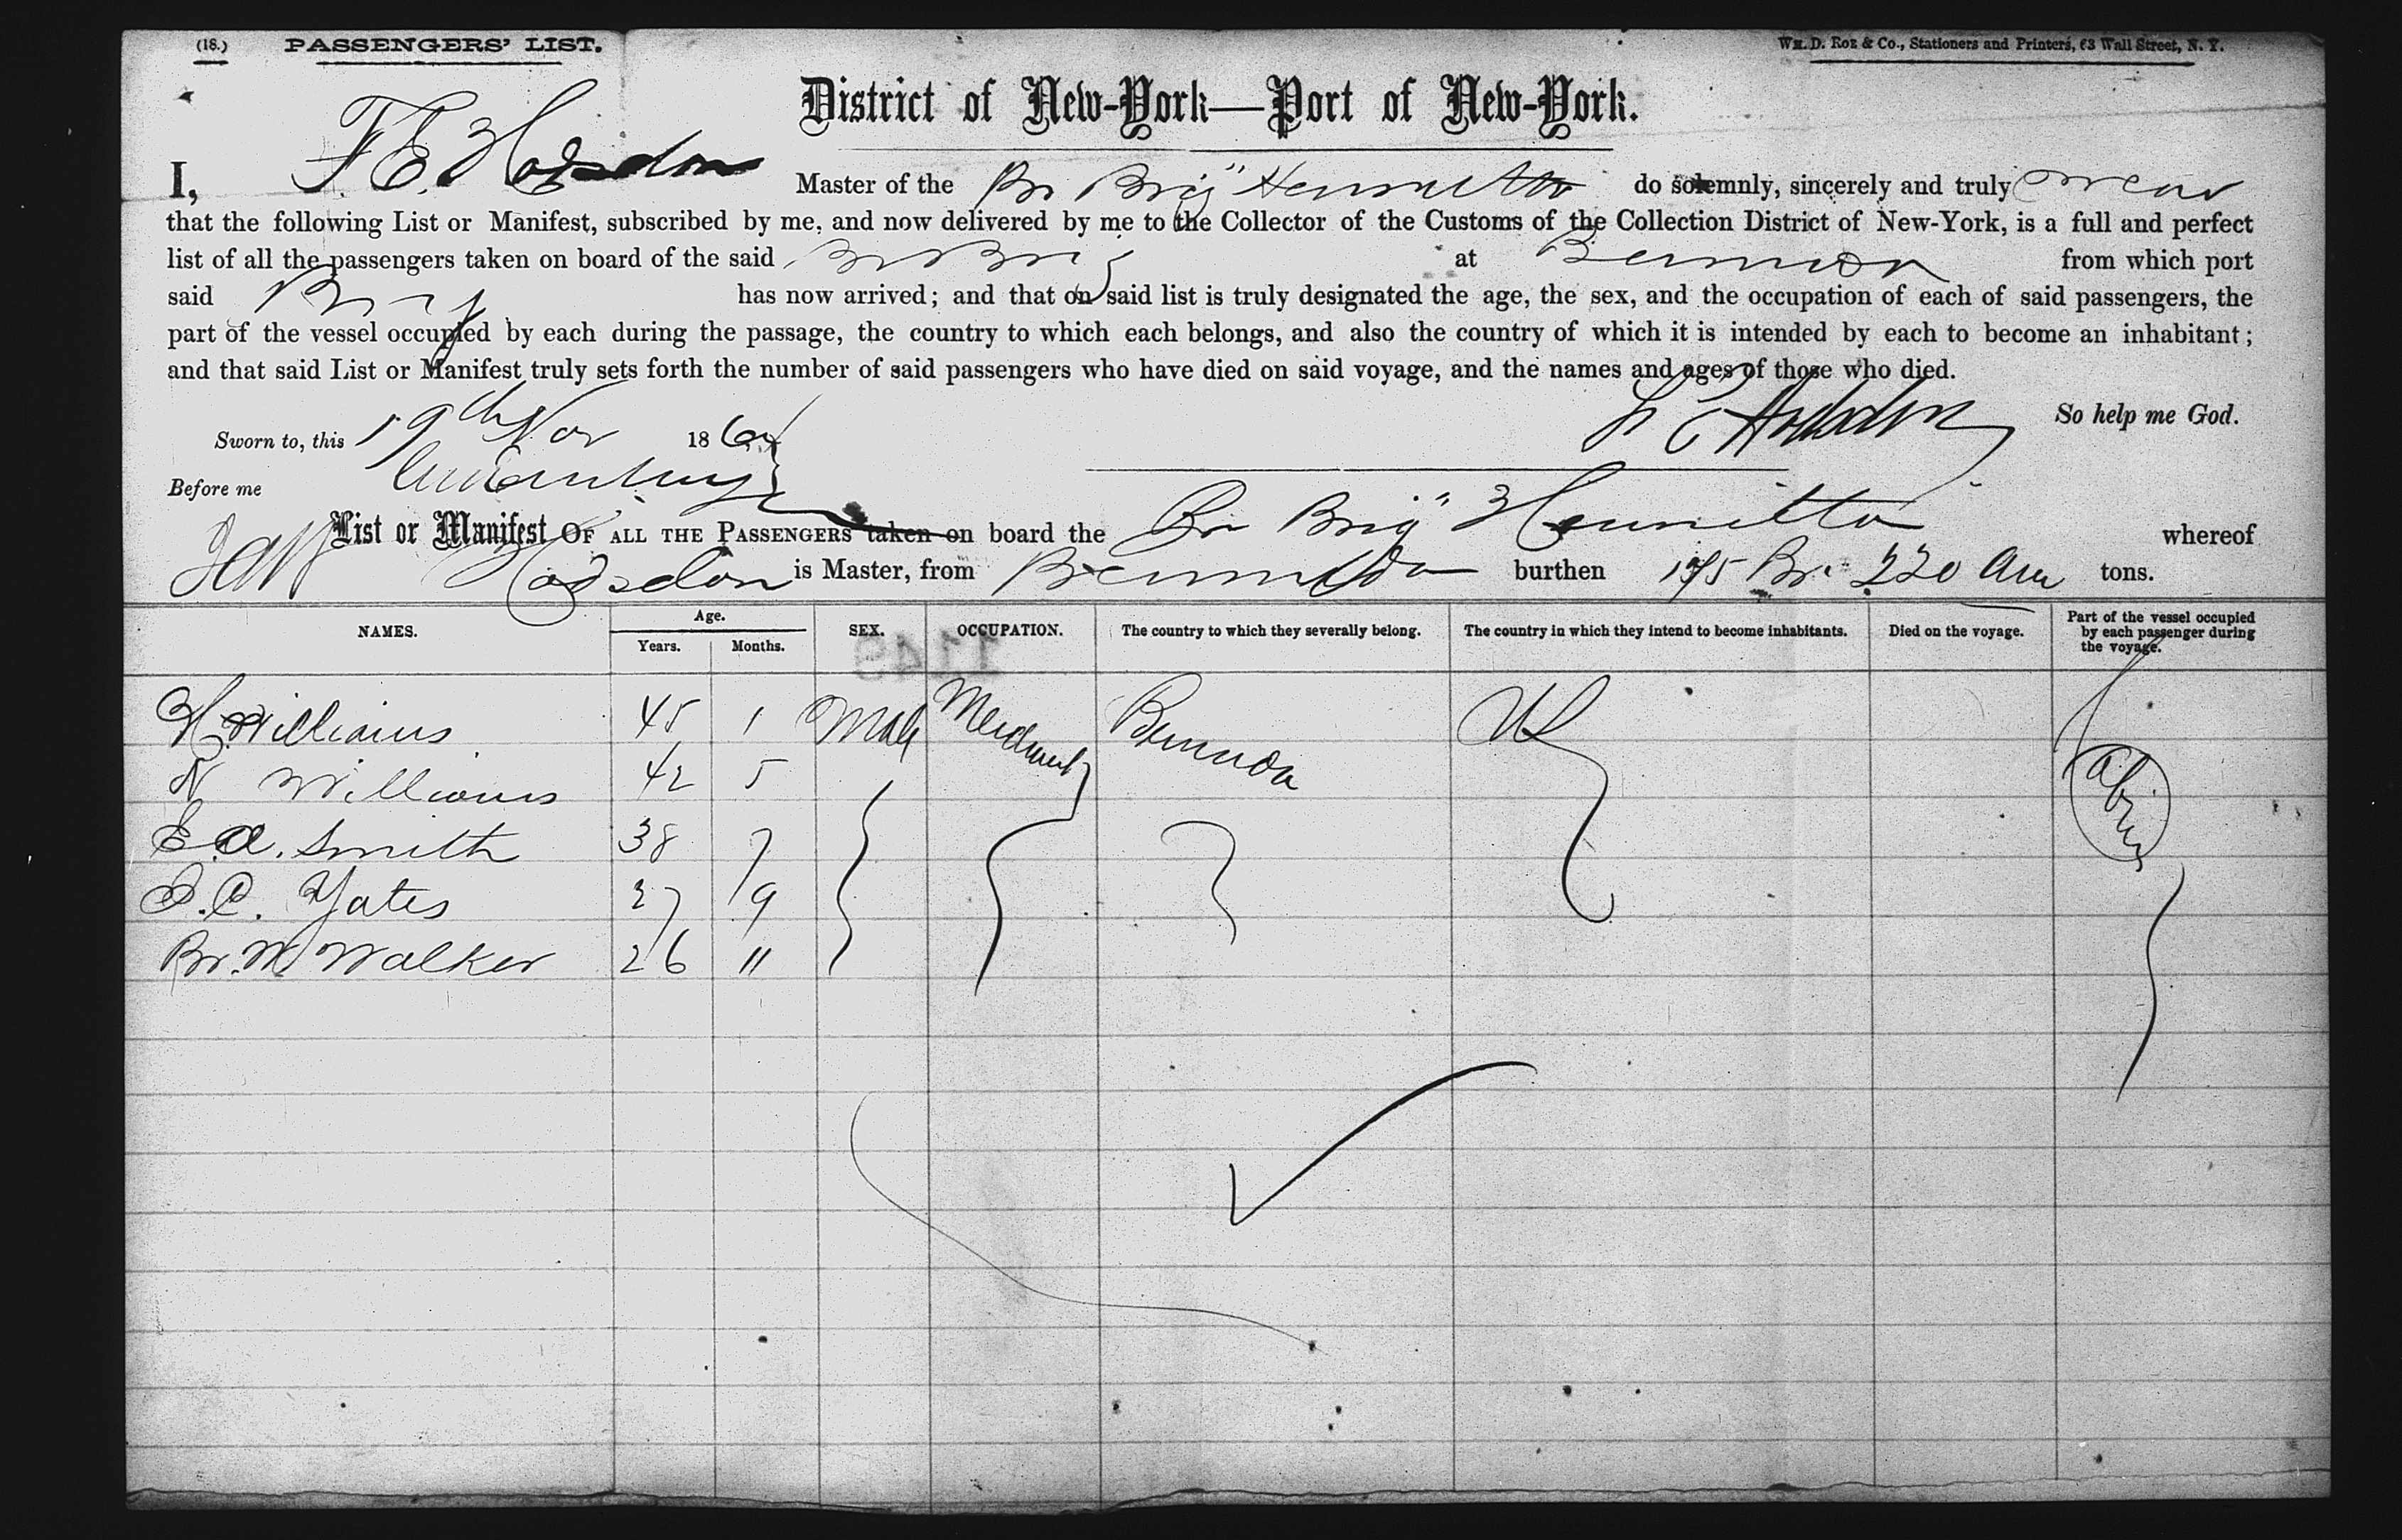 (18.) PASSENGERS' LIST. Wm. D. Roe & Co., Stationers and Printers, 63 Wall Street, N. Y.
District of New-York—Port of New-York.
I, F. E. Hodsdon Master of the Br Brig "Henrietta do solemnly, sincerely and truly swear
that the following List or Manifest, subscribed by me, and now delivered by me to the Collector of the Customs of the Collection District of New-York, is a full and perfect
list of all the passengers taken on board of the said Br Brig at Bermuda from which port
said Brig has now arrived; and that on said list is truly designated the age, the sex, and the occupation of each of said passengers, the
part of the vessel occupied by each during the passage, the country to which each belongs, and also the country of which it is intended by each to become an inhabitant;
and that said List or Manifest truly sets forth the number of said passengers who have died on said voyage, and the names and ages of those who died.
So help me God.
Sworn to, this 19th Nov 186
Before me
List or Manifest OF ALL THE PASSENGERS taken on board the Br Brig "Henrietta whereof
Hodsdon is Master, from Bermuda burthen 195 Br. 220 Am tons.
NAMES. Age. Years. Months. SEX. OCCUPATION. The country to which they severally belong. The country in which they intend to become inhabitants. Died on the voyage. Part of the vessel occupied by each passenger during the voyage.
1149
H. Williams 45 1 Male Merchant Bermuda US Cabin
N Williams 42 5
E. A. Smith 38 7
C. Yates 27 9
M Walker 26 11